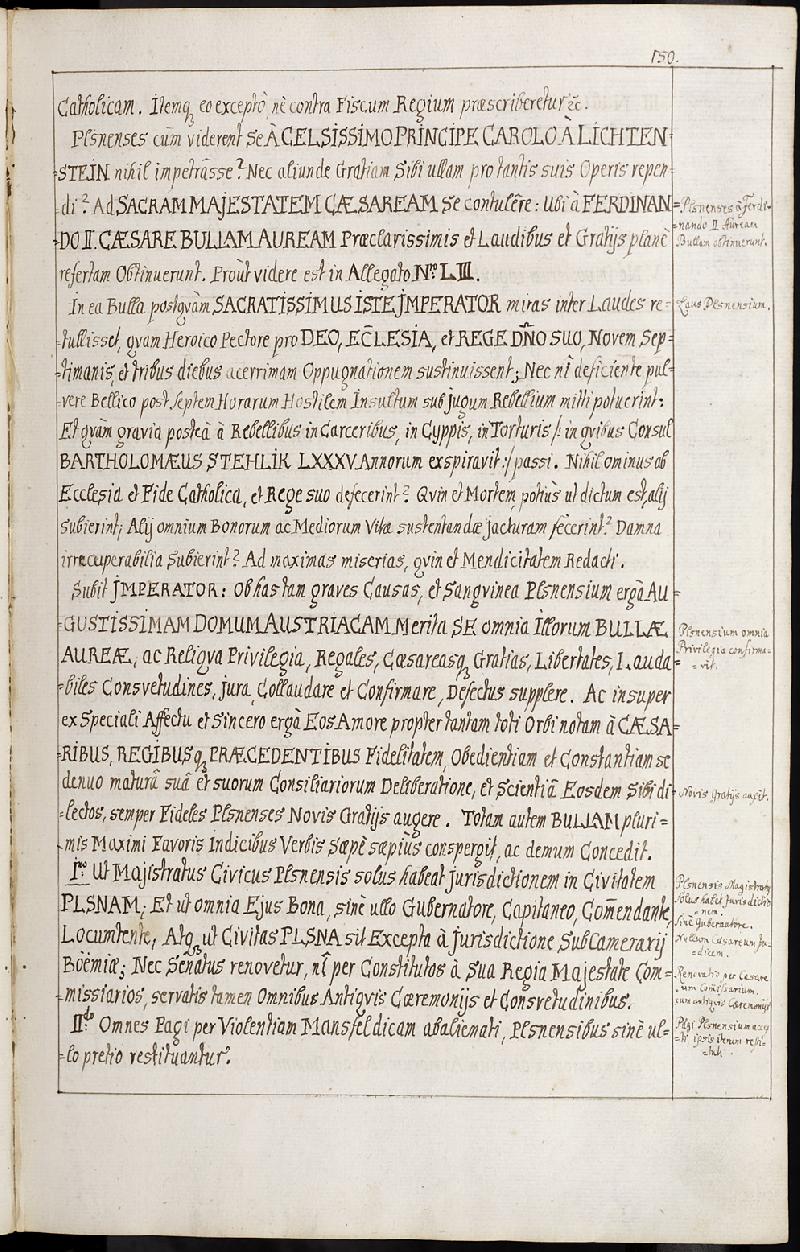 150.
Catholicam. Itemq; eo excepto nè contra Fiscum Regium præscriberetur &c.
Plsnenses cùm viderent Se À CELSISSIMO PRINCIPE CAROLO À LICHTEN=
=STEIN nihil impetrâsse? Nec aliunde Gratiam Sibi ullam pro tantis suis Operis repen=
=di? Ad SACRAM MAJESTATEM CÆSAREAM Se contulêre: ubi à FERDINAN=
DO II. CÆSARE BULLAM AUREAM Præclarissimis et Laudibus et Gratijs planè
refertam Obtinuerunt. Prout videre est in Allegato Nro LIII.
In ea Bulla postqvàm SACRATISSIMUS ISTE IMPERATOR miras inter Laudes re=
=tulisset, qvam Heroico Pectore pro DEO, ECLESIA, et REGE DÑO SUO, Novem Sep=
=timanis, et tribus diebus acerrimam Oppugnationem sustinuissent; Nec ni deficiente pul=
=vere Bellico post Septem Horarum Hostilem Insultum sub jugum Rebellium mitti potuerint:
Et qvàm gravia posteà à Rebellibus in Carceribus, in Cyppis, in Torturis /: in qvibus Consul
BARTHOLOMÆUS STEHLIK LXXXV Annorum exspiravit :/ passi. Nihilominus ab
Ecclesia et Fide Catholica, et Rege suo defecerint? Qvin et Mortem potiùs ut dictum est, alij
subierint; Alij omnium Bonorum ac Mediorum Vitæ sustentandæ jacturam fecerint? Damna
irrecuperabilia Subierint? Ad maximas miserias, qvin et Mendicitatem Redacti.
Subit IMPERATOR: Ob has tam graves Causas, et Sangvinea Plsnensium ergà Au=
=GUSTISSIMAM DOMUM AUSTRIACAM Merita SE omnia Illorum BULLÆ
AUREÆ, ac Reliqva Privilegia, Regales, Cæsareasq; Gratias, Libertates, Lauda=
=biles Consvetudines, jura, Collaudare et Confirmare, Defectus supplere. Ac insuper
ex Speciali Affectu et Sincero ergà Eos Amore propter tantam toti Orbi notam à CÆSA=
RIBUS, REGIBUSq; PRÆCEDENTIBUS Fidelitatem, Obedientiam et Constantiam se
denuo maturâ suâ et suorum Consiliariorum Deliberatione, et Scientiâ Eosdem Sibi di=
=lectos, semper Fideles Plsnenses Novis Gratijs augere. Totam autem BULLAM pluri=
=mis Maximi Favoris Indicibus Verbis Sæpè sæpiùs conspergit, ac demum Concedit.
Imo Ut Majistratus Civicus Plsnensis solus habeat jurisdictionem in Civitatem
PLSNAM; Et ut omnia Ejus Bona, sinè ullo Gubernatore, Capitaneo, Comendante,
Locumtente, Atq; ut Civitas PLSNA sit Excepta à Jurisdictione SubCamerarij
Boëmiæ; Nec Senatus renovetur, nî per Constitutos à Sua Regia Majestate Com=
=missiarios, servatis tamen Omnibus Antiqvis Cæremonijs et Consvetudinibus.
IIdo Omnes Pagi per Violentiam Mansfeldicam abalienati, Plsnensibus sinè ul=
=lo pretio restituantur.
=Plsnenses à Ferdi=
=nando II Auream
Bullam obtinuerunt.
Laus Plsnensium.
Plsnensium omnia
Privilegia confirma=
=vit.
Novis gratijs auxit.
Plsnensis Magistratus
Solus habet jurisdictio
nem.
Sinè Gubernatore.
Nullum Cæsareum Ju=
=dicem.
Renovatio per Cæsare
cum antiqvis Cæremonijs
Pagi Plsnensium
=ti ipsis iterum resti=
=tuti.